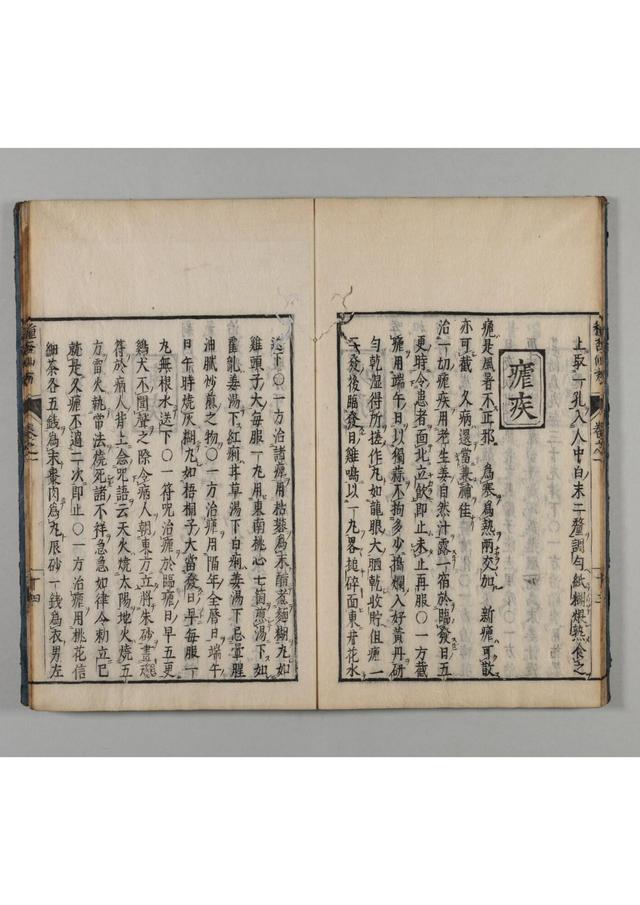 止取一孔入人中白末二釐調勻紙糊煨熟食之
瘧疾
瘧是風暑不正邪 為寒為熱兩交加 新瘧可散
亦可截 久病還當兼補佳
治一切瘧疾用老生姜自然汁露一宿於臨發日五
更時令患者面北立飲即止未止再服○一方截
瘧用端午日以獨蒜不拘多少搗爛入好黃丹研
勻乾濕得所搓作丸如龍眼大晒乾收貯但瘧一
二發後臨發日雞鳴以一丸畧搥碎面東井花水
送下○一方治諸瘧用枯礬為末醋煮麵糊丸如
雞頭子大每服一丸用東南桃心七箇煎湯下如
瘧亂姜湯下紅痢甘草湯下白痢姜湯下忌葷腥
油膩炒煎之物○一方治瘧用隔年全曆日端午
日午時燒灰糊丸如梧桐子大當發日早每服一
丸無根水送下○一符呪治瘧於臨瘧日早五更
鷄犬不聞聲之際令病人朝東方立將朱砂畫
符於病人背上念咒語云天火燒太陽地火燒五
方雷火執常法燒死諸不祥急急如律令勅立已
就是久瘧不過二次即止○一方治瘧用桃花信
細茶各五錢為末棗肉為丸辰砂一錢為衣男左
卷之一
十四